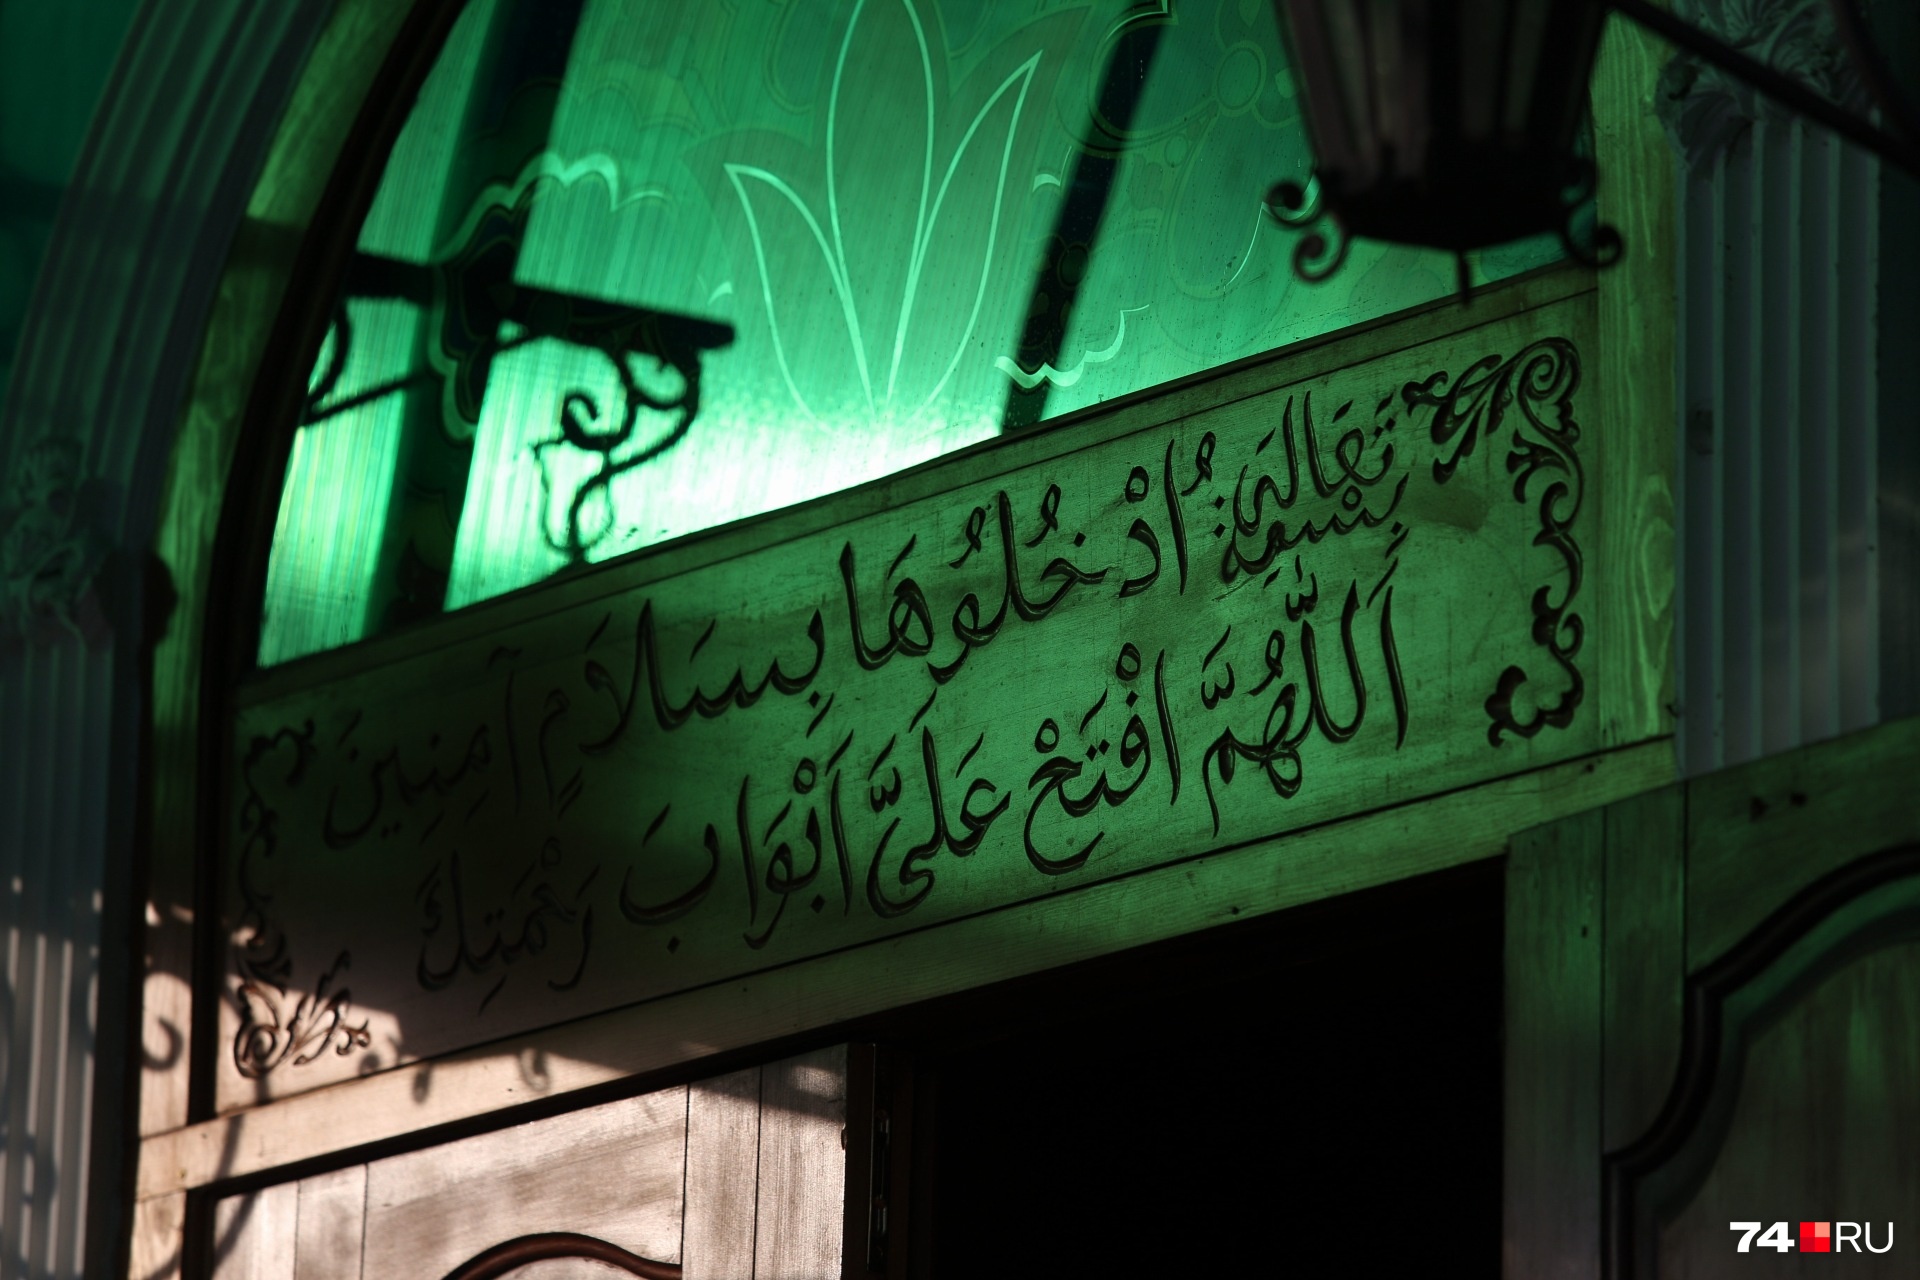 بِسْمِهِ تَعَالَى : اُدْخُلُوهَا بِسَلَامٍ آمِنِينَ
اَللّٰهُمَّ افْتَحْ عَلَىَّ اَبْوَابَ رَحْمَتِكَ
74 RU